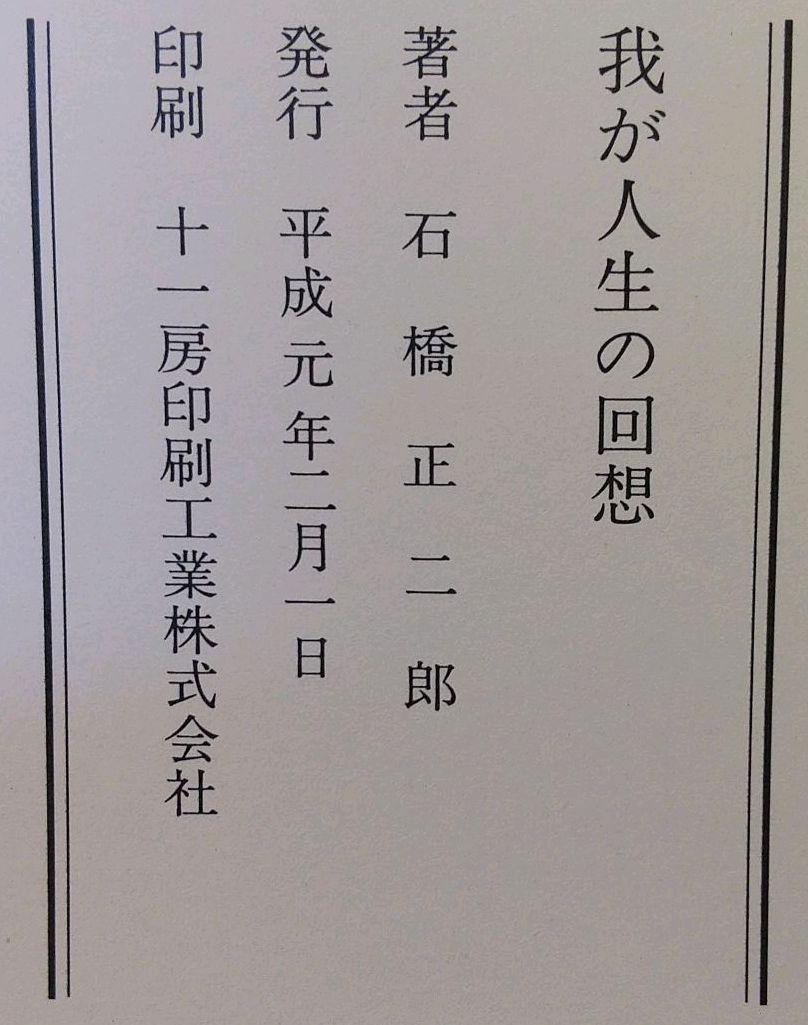 我が人生の回想
著者　石橋正二郎
発行　平成元年二月一日
印刷　十一房印刷工業株式会社